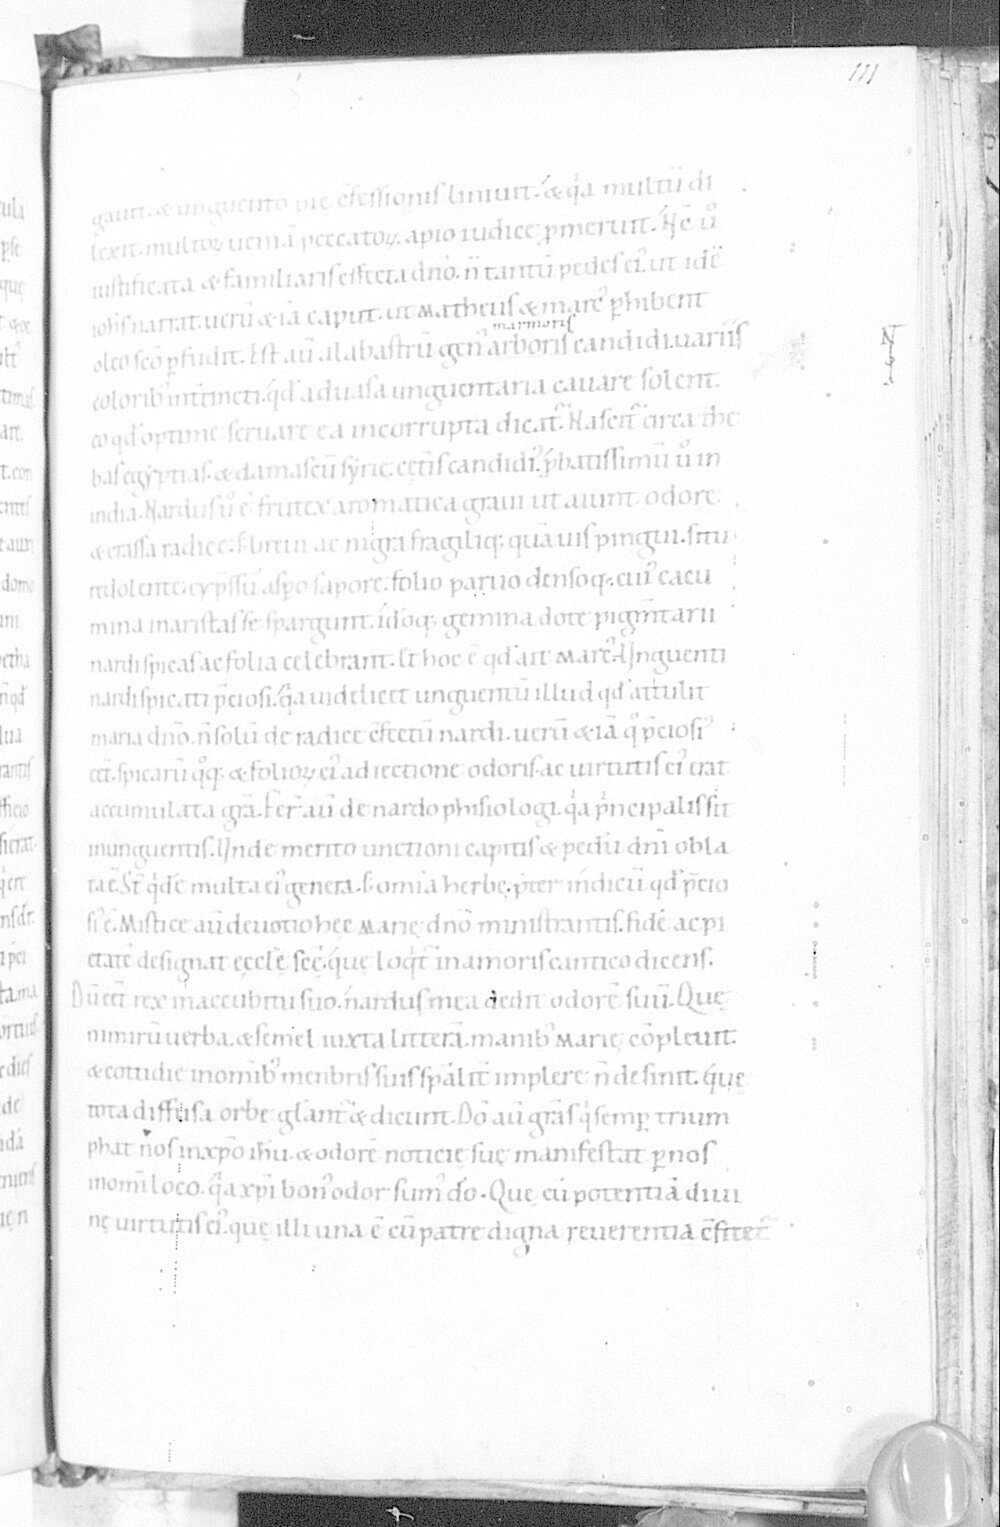 111
gauit. & unguento pie c̄fessionis liniuit. & q̇a multū di
lexit. multoꝝ ueniā peccatoꝝ. apio iudice ꝓmeruit. H̄c ů
iustificata & familiaris effecta dn̄o. n̄ tantū pedes ei᾽. ut idē
ioh̄s narrat. uerū & iā caput. ut Matheus & marc᾽ ꝑhibent
marmoris
oleo sc̄o ꝑfudit. Est aū alabastrū gen᾽ arboris candidi. uariis
colorib᾽ int̄incti. qd̄ ad uasa unguentaria cauare solent.
eo qd̄ optime seruare ea incorrupta dicat᾽. Nascit᾽ circa the
bas egyptias. & damascū syrię. cęt̄is candidi᾽. ꝓbatissimū ů in
india. Nardus ů ē frutex aromatica graui ut aiunt odore.
& crassa radice. s; breui ac nigra fragiliq; quāuis pingui. situ
redolente. cyp̄ssū. aspo sapore. folio paruo densoq; cui᾽ cacu
mina in aristas se spargunt. idoq; gemina dote pigm̄tarii
nardi spicas ac folia celebrant. Et hoc ē qd̄ ait Marc᾽. Unguenti
nardi spicati p̄ciosi. q̇a uidelicet unguentū illud qd̄ attulit
maria dn̄o. n̄ solū de radice c̄fectū nardi. uerū & iā q̊ p̄ciosi᾽
eēt. spicarū q̊q; & folioꝝ ei᾽ adiectione odoris ac uirtutis ei᾽ erat
accumulata grā. Fer̄ aū de nardo phisiologi. q̇a p̄ncipalis sit
in unguentis. Unde merito unctioni capitis & pedū dn̄i obla
ta ē. St̄ q̇dē multa ei᾽ genera. s; omia herbę. p̄ter indicū qd̄ p̄cio
si᾽ ē. Mistice aū deuotio hęc Marię dn̄o ministrantis. fidē ac pi
etatē designat ęccl̄ę sc̄ę. que loq̇t᾽ in amoris cantico dicens.
Dū eēt rex in accubitu suo. nardus mea dedit odorē suū. Quę
nimirū uerba. & semel iuxta litterā. manib᾽ Marię cōpleuit.
& cottidie in omib᾽ menbris suis sp̄alit̄ implere n̄ desinit. quę
tota diffusa orbe gl̄ant᾽ & dicunt. Dō aū grās q̇ semꝑ trium
phat nos in xp̄o ih̄u. & odorē noticię suę manifestat ꝑ nos
in omi loco. q̇a xp̄i bon᾽ odor sum᾽ dō. Quę cū potentiā diui
nę uirtutis ei᾽. que illi una ē cū patre digna reuerentia c̄fitet᾽